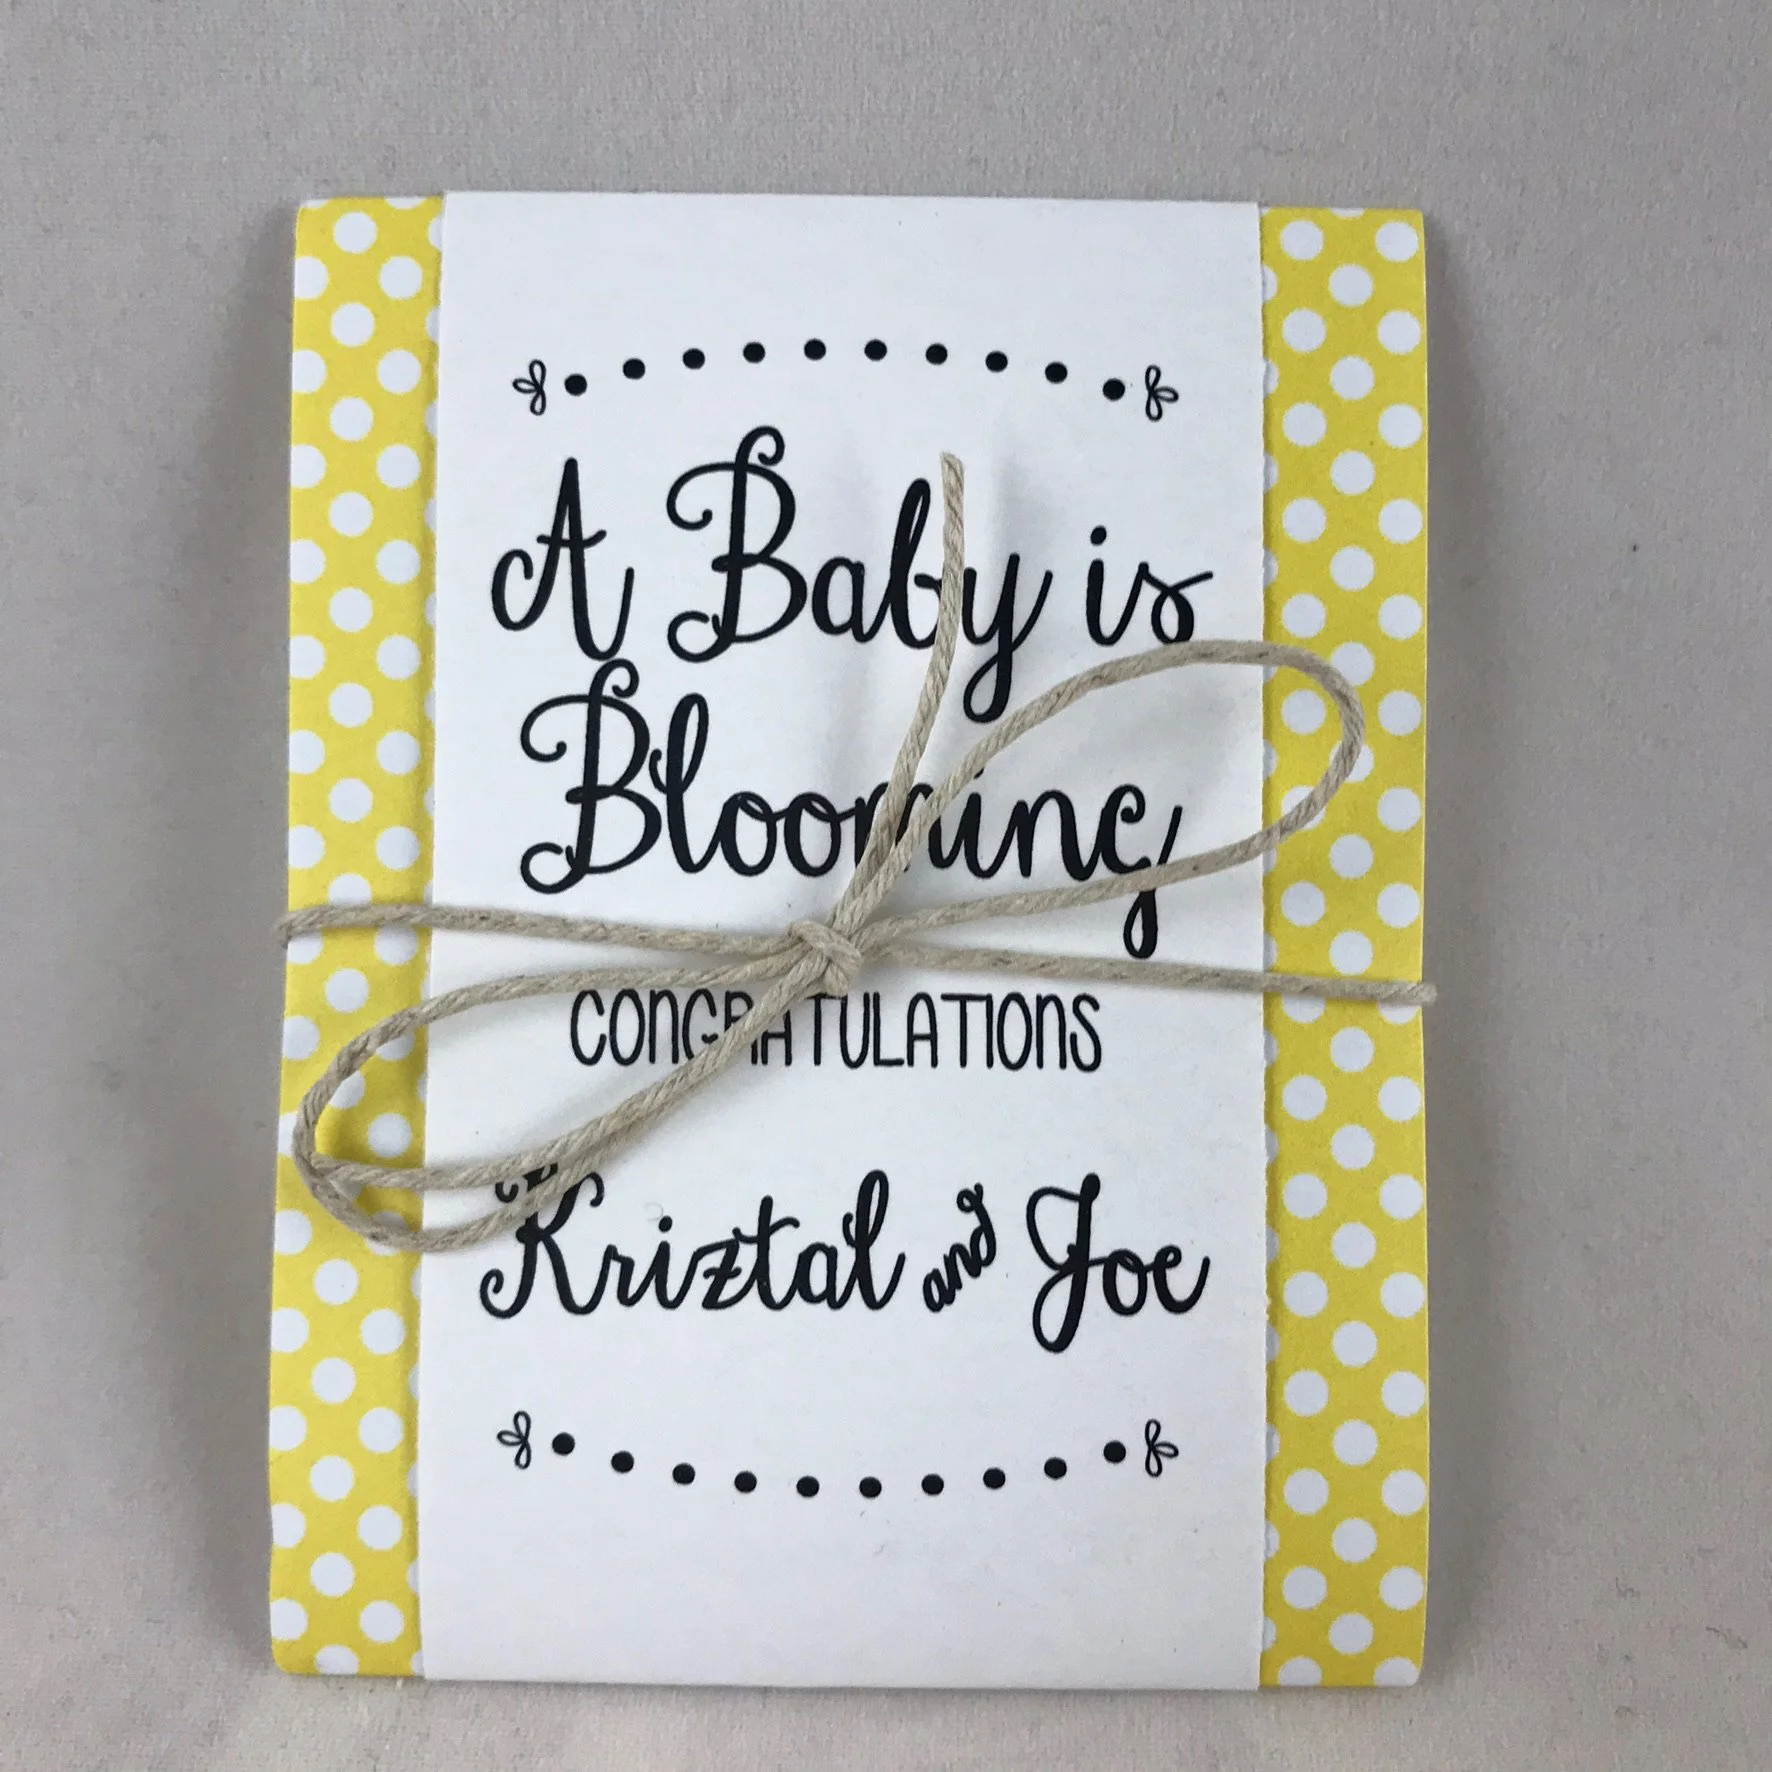 A Baby is
Blooming
CONGRATULATIONS
Kriztal and Joe